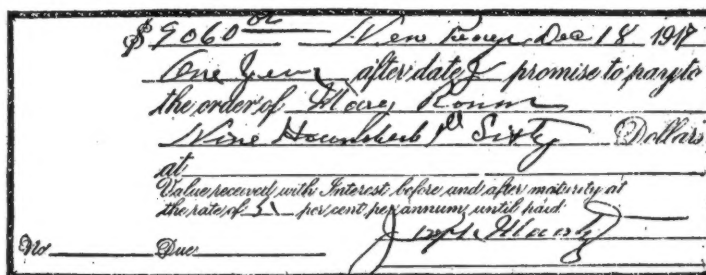 $ 9060 00 New Dec 18 1917
One Year after date I promise to pay to
the order of Mary
Nine Hundred Sixty Dollars
at
Value received with Interest before and after maturity at
the rate of 5 per cent per annum until paid.
No Due Joseph